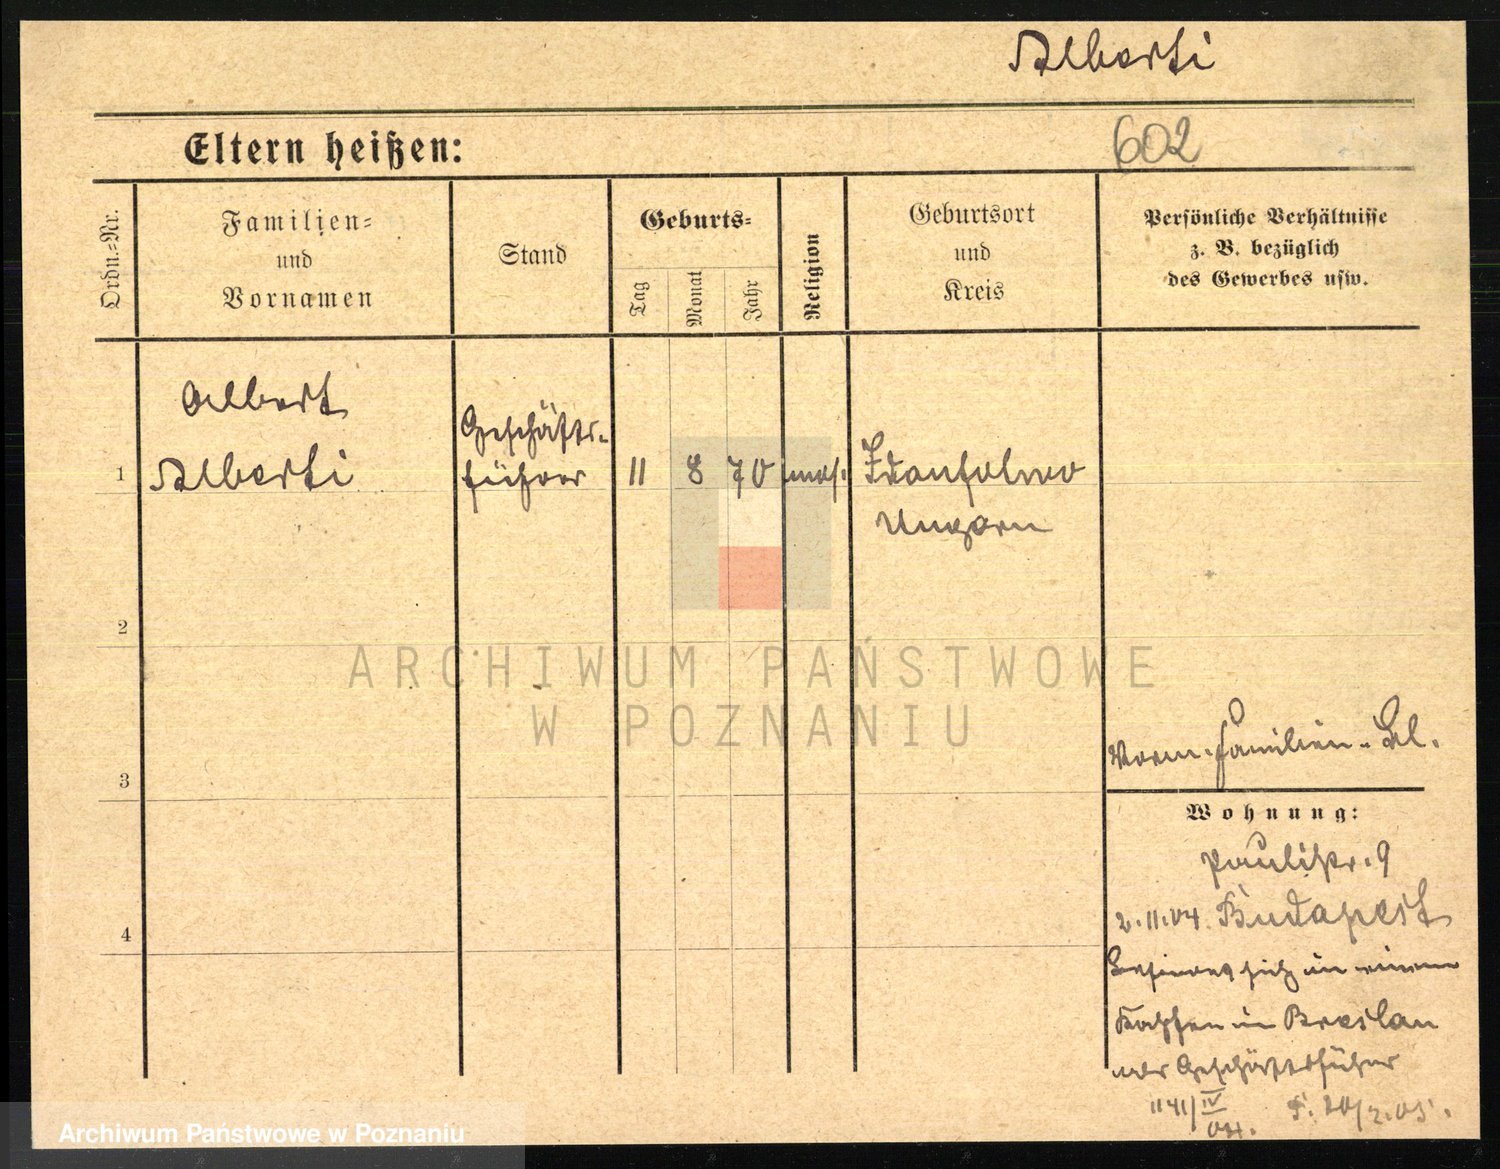 Alberti
Eltern heißen:
602
Ordn.=Nr.
Familien=
und
Vornamen
Stand
Geburts=
Tag
Monat
Jahr
Religion
Geburtsort
und
Kreis
Persönliche Verhältnisse
z. B. bezüglich
des Gewerbes usw.
1
Albert
Alberti
Geschäfts-
führer
11
8
70
mos.
Ungarn
2
3
4
Vorm. Familien-Bl.
Wohnung:
Paulistr. 9
2.11.04. Budapest
befindet sich in einem
in Breslau
als Geschäftsführer
1141/IV
04.
20/2.05.
ARCHIWUM PAŃSTWOWE
W POZNANIU
Archiwum Państwowe w Poznaniu